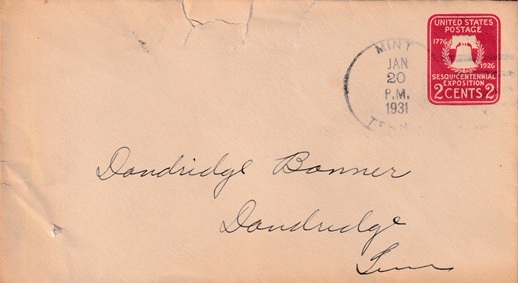 UNITED STATES
POSTAGE
1776
1926
SESQUICENTENNIAL
EXPOSITION
2 CENTS 2
MINT
JAN
20
P.M.
1931
TENN
Dandridge Banner
Dandridge
Tenn